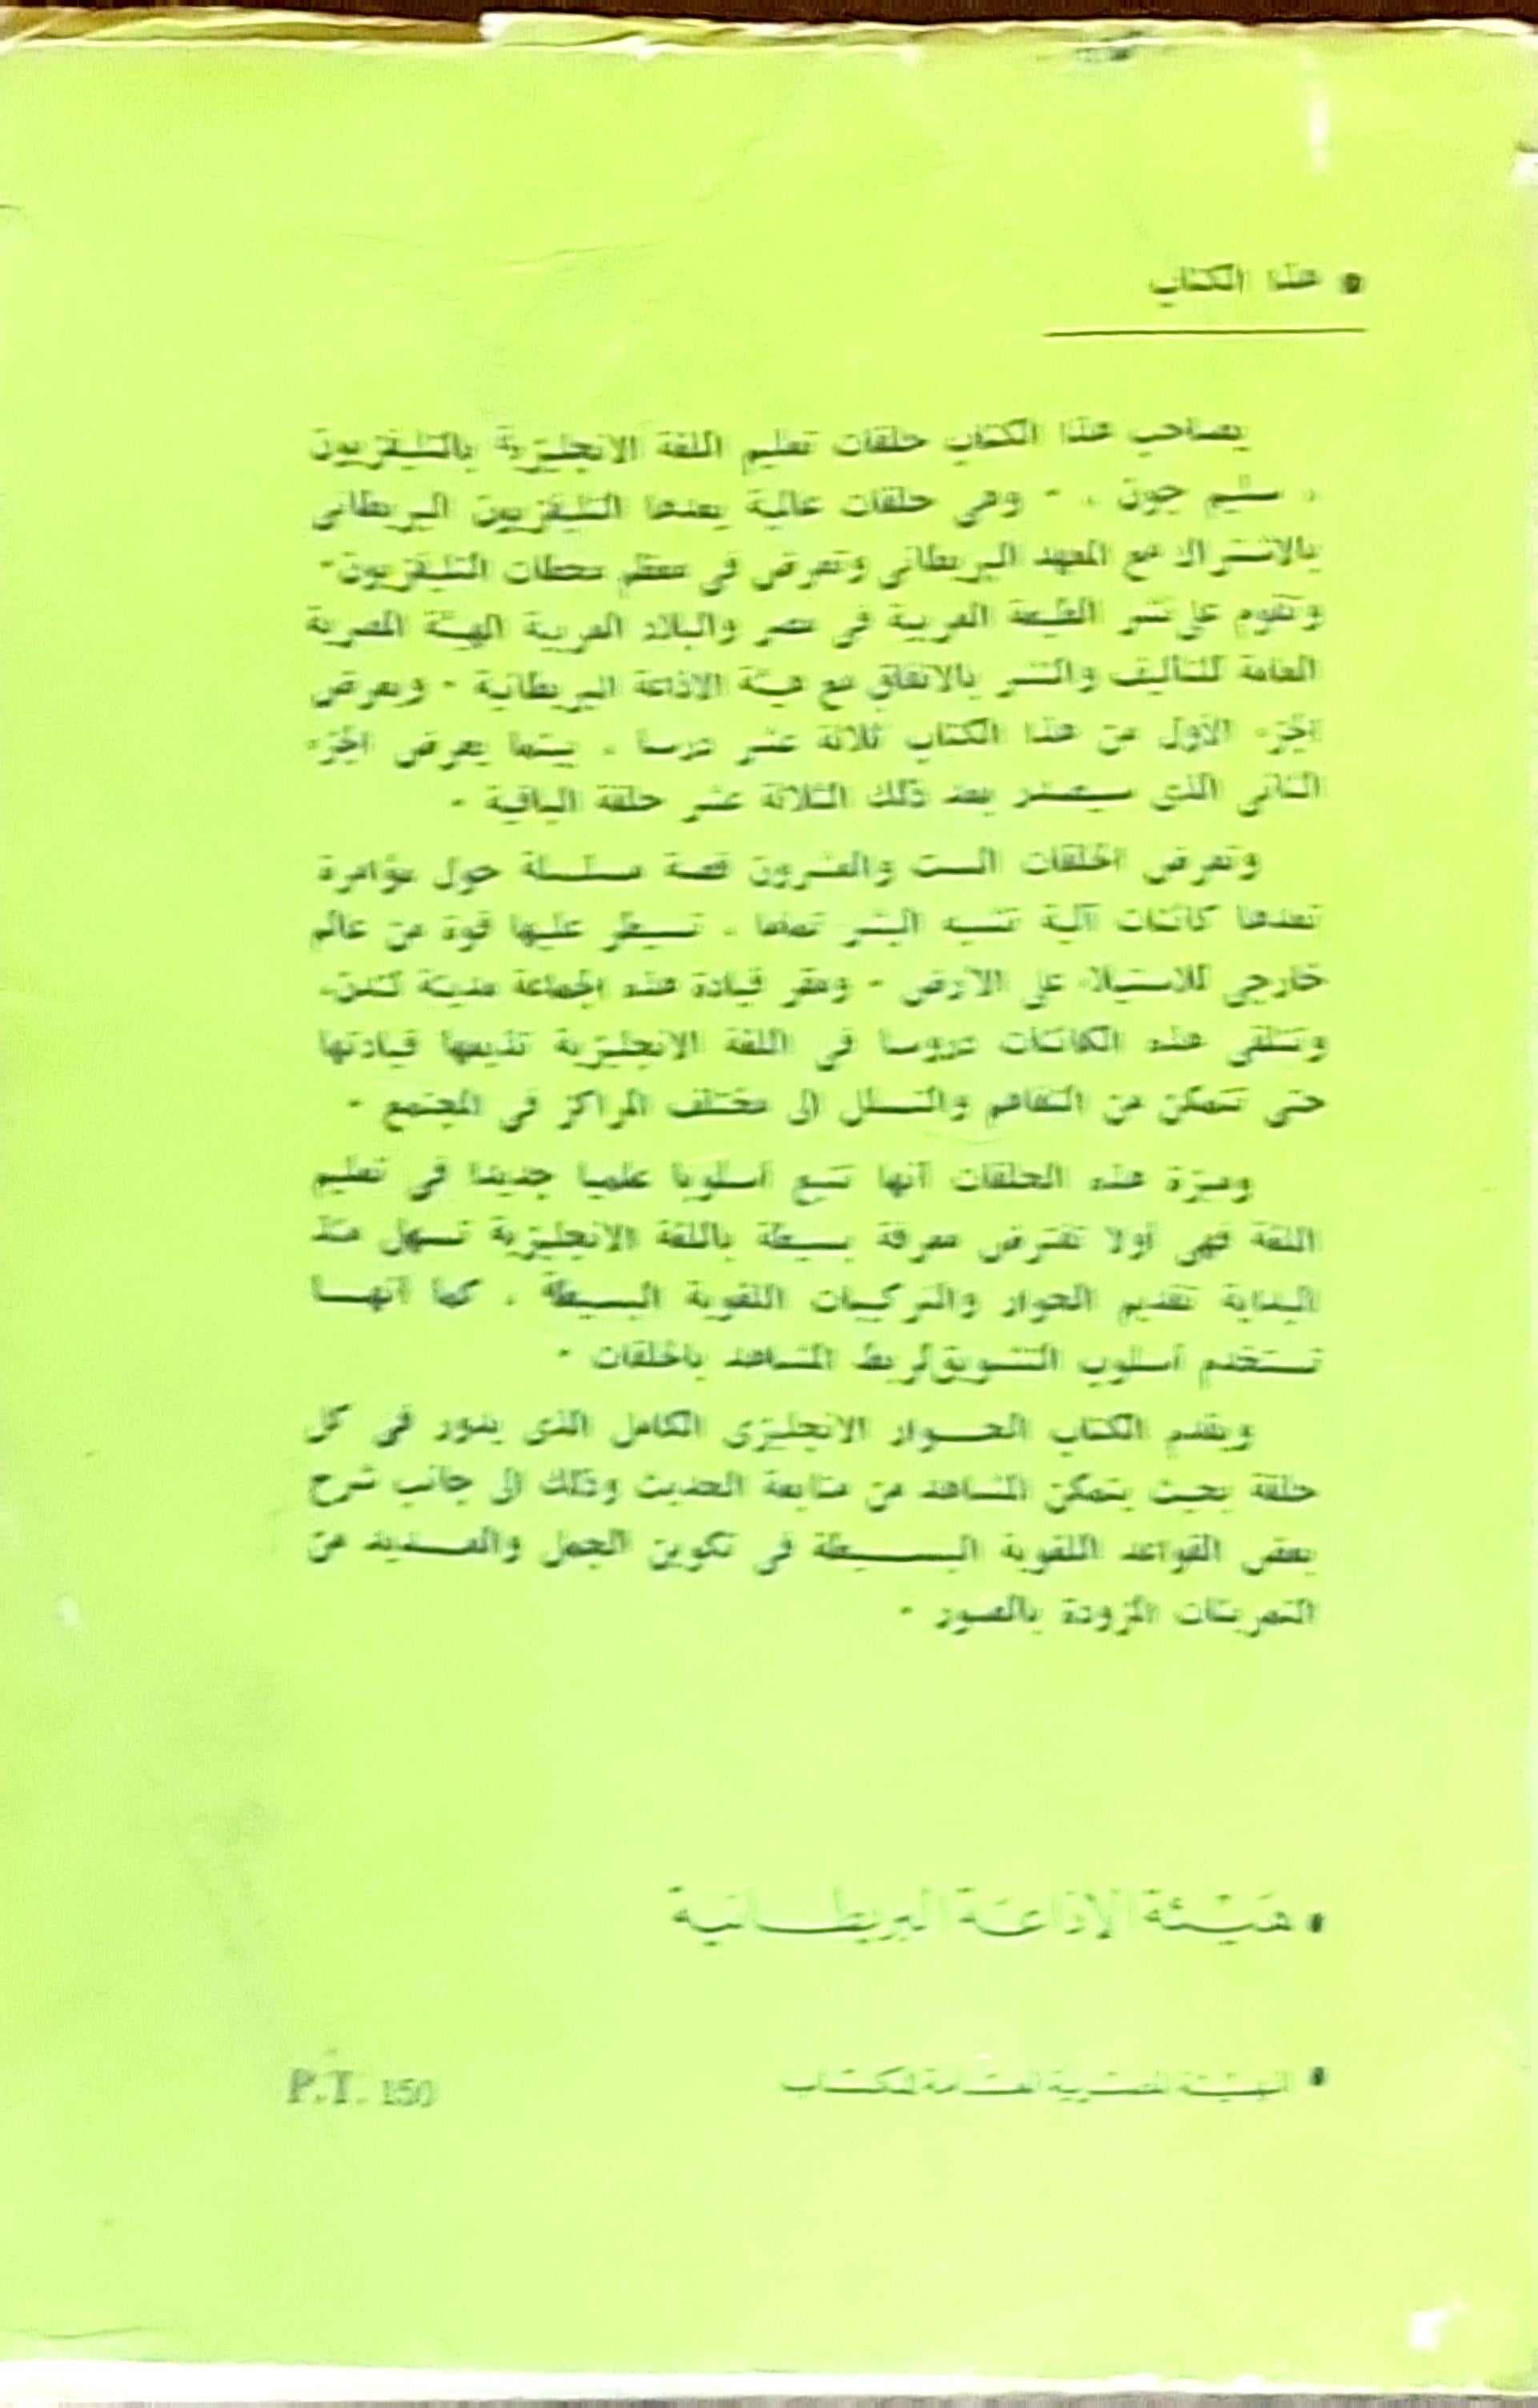 • هذا الكتاب
يصاحب هذا الكتاب حلقات تعليم اللغة الانجليزية بالتليفزيون
« سليم جون » - وهى حلقات عالمية يعدها التليفزيون البريطانى
بالاشتراك مع المعهد البريطانى وتعرض فى معظم محطات التليفزيون -
وتقوم على نشر الطبعة العربية فى مصر والبلاد العربية الهيئة المصرية
العامة للتأليف والنشر بالاتفاق مع هيئة الاذاعة البريطانية - ويعرض
الجزء الأول من هذا الكتاب ثلاثة عشر درسا ، بينما يعرض الجزء
الثانى الذى سيصدر بعد ذلك الثلاثة عشر حلقة الباقية -
وتعرض الحلقات الست والعشرون قصة مسلسلة حول مؤامرة
تعدها كائنات آلية تشبه البشر تماما ، تسيطر عليها قوة من عالم
خارجى للاستيلاء على الأرض - ومقر قيادة هذه الجماعة مدينة لندن،
وتتلقى هذه الكائنات دروسا فى اللغة الانجليزية تذيعها قيادتها
حتى تتمكن من التفاهم والتسلل الى مختلف المراكز فى المجتمع -
وميزة هذه الحلقات أنها تتبع أسلوبا علميا جديدا فى تعليم
اللغة فهى أولا تفترض معرفة بسيطة باللغة الانجليزية تسهل منذ
البداية تقديم الحوار والتركيبات اللغوية البسيطة ، كما أنهــا
تستخدم أسلوب التشويق لربط المشاهد بالحلقات -
ويقدم الكتاب الحــوار الانجليزى الكامل الذى يدور فى كل
حلقة بحيث يتمكن المشاهد من متابعة الحديث وذلك الى جانب شرح
بعض القواعد اللغوية البســيطة فى تكوين الجمل والعــديد من
التمرينات المزودة بالصور -
• هَيئة الإذاعَة البريطــانية
• الهيئة المصرية العامة للكتاب
P.T. 150